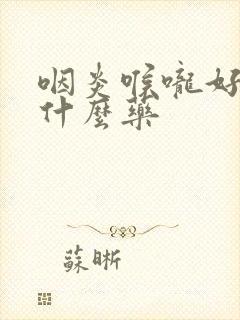 咽炎喉嚨好
什麼藥
蘇晰